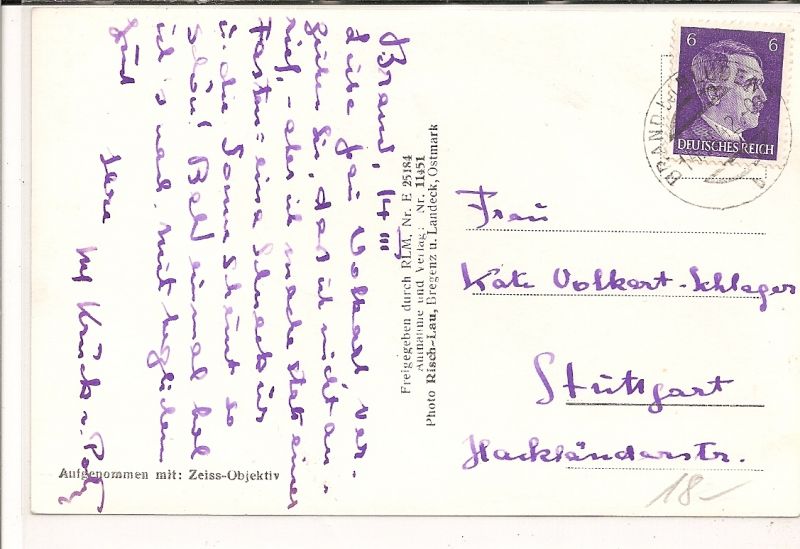 Brand, 14 III
Liebe Frau Volkart ver-
zeihen Sie, das ich nicht an-
rief, – aber ich mache statt einer
Fasten = eine Schneekur
u. die Sonne scheint so
schön! Bald einmal hol
ich's nach, mit herzlichem
Gruß
Ihre
Freigegeben durch RLM, Nr. E 25184
Aufnahme und Verlag: Nr. 11451
Photo Risch-Lau, Bregenz u. Landeck, Ostmark
Aufgenommen mit: Zeiss-Objektiv
6 6
DEUTSCHES REICH
BRAND
Frau
Kate Volkart-Schlager
Stuttgart
Hackländerstr.
18-